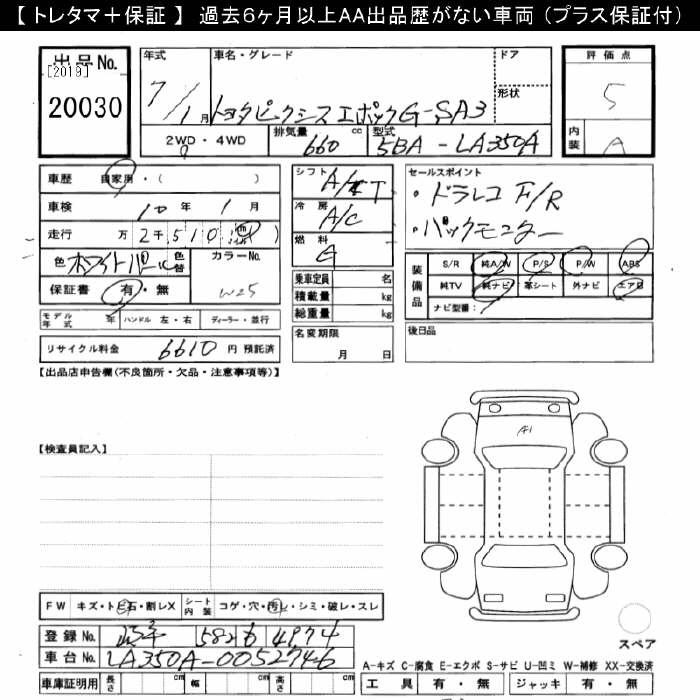 【 トレタマ＋保証 】 過去6ヶ月以上AA出品歴がない車両（プラス保証付）
出品No.
[2019]
20030
年式
7/1月
車名・グレード
トヨタピクシスエポックG-SA3
ドア
形状
評価点
5
内装
A
2WD・4WD
排気量
660 cc
型式
5BA-LA350A
車歴 自家用・（　　）
車検 10年 1月
走行 万2千510 km マイル
色 ホワイトパール 色替
カラーNo.
W25
保証書 有・無
モデル年式 年 ハンドル 左・右 ディーラー・並行
リサイクル料金 6610 円 預託済
シフト
A/T
冷房
A/C
燃料
G
乗車定員 名
積載量 kg
総重量 kg
名変期限
月 日
セールスポイント
・ドラレコ F/R
・バックモニター
装備品
S/R 純A/W P/S P/W ABS
純TV 純ナビ 革シート 外ナビ エアB
ナビ型番：
後日品
【出品店申告欄（不良箇所・欠品・注意事項等）】
【検査員記入】
A1
スペア
FW キズ・トビ石・割レX シート内装 コゲ・穴・汚レ・シミ・破レ・スレ
登録No. 582 6 4974
車台No. LA350A-0052746
車庫証明用 長さ cm 幅 cm 高さ cm
A-キズ C-腐食 E-エクボ S-サビ U-凹ミ W-補修 XX-交換済
工具 有・無 ジャッキ 有・無